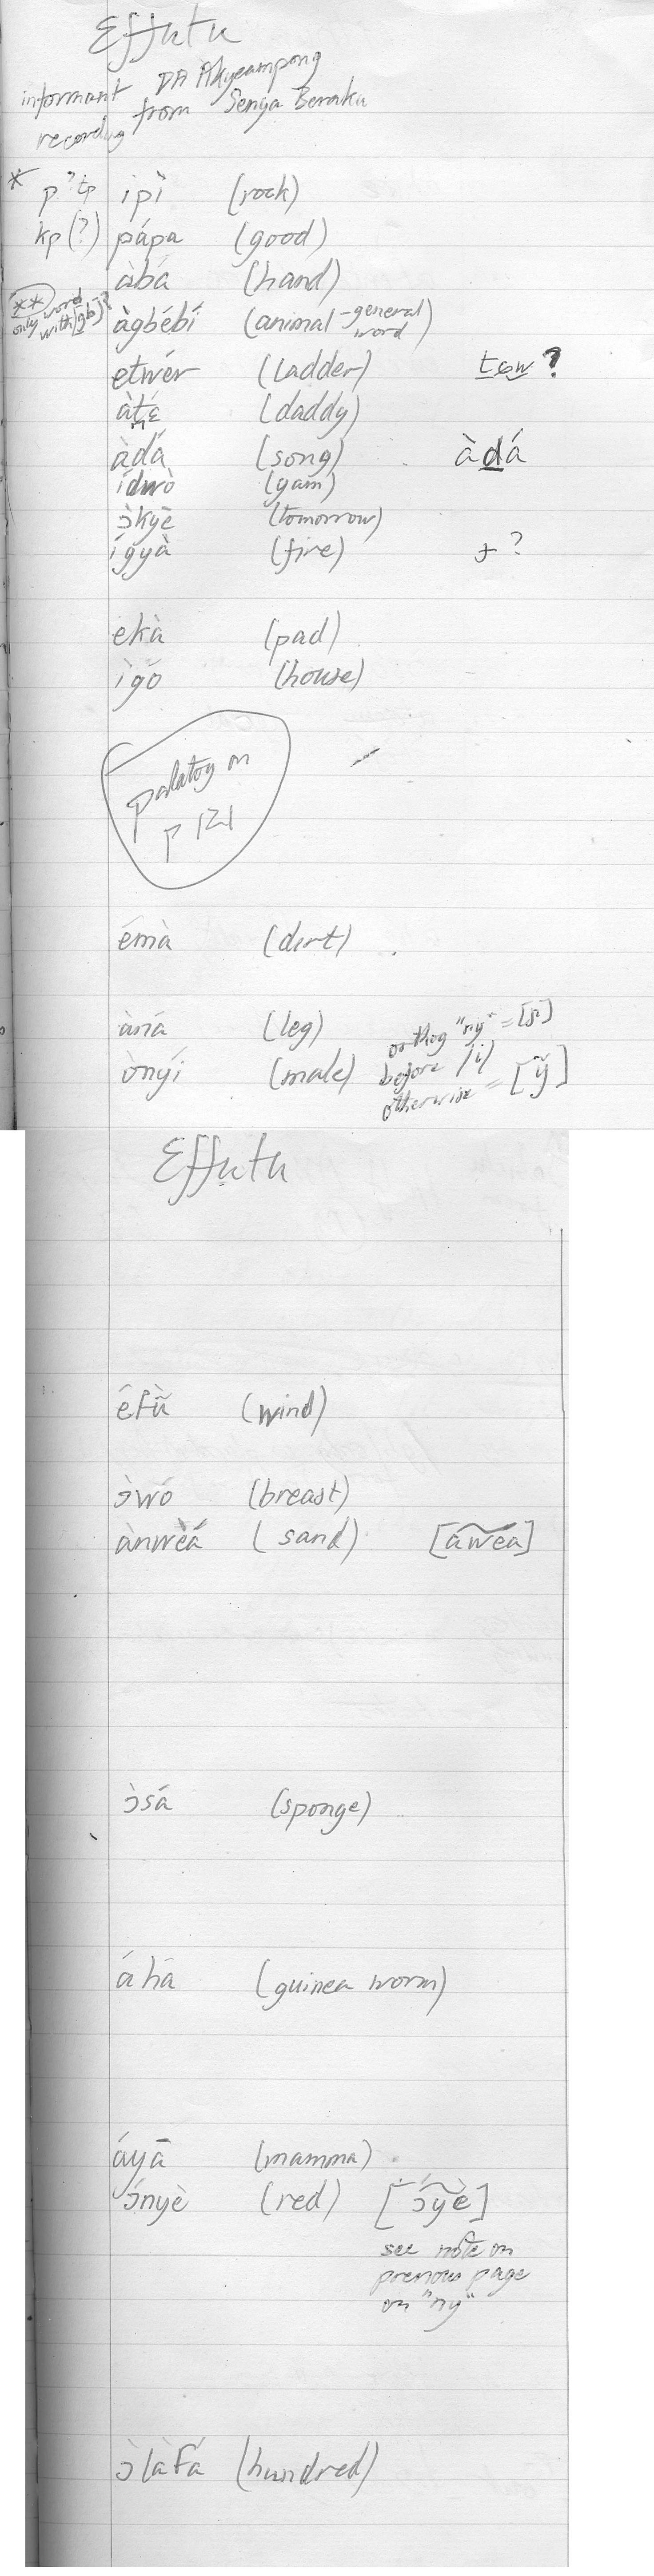 Effutu
informant DA Akyeampong
recording from Senya Beraku
* p ? tp ìpì (rock)
kp(?) pápa (good)
àbá (hand)
** only word with [gb]? àgbébí (animal - general word)
etwér (ladder)
àtɛ́ (daddy)
àdá (song) àd̲á
ídwò (yam)
ɔ̀kyè (tomorrow)
ígyà (fire) ɟ ?
ekà (pad)
ìgó (house)
palatog on
p 121
émà (dirt)
àná (leg) orthog "ny" = [ɲ]
ònyí (male) before /i/
otherwise = [ỹ]
Effutu
éfũ̀ (wind)
ɔ̀wó (breast)
ànwèá (sand) [ãw̃ẽã]
ɔ̀sá (sponge)
áhā (guinea worm)
áyā (mamma)
ɔ́nyè (red) [ɔ̃́ỹẽ̀]
see note on
previous page
on "ny"
ɔ̀làfá (hundred)